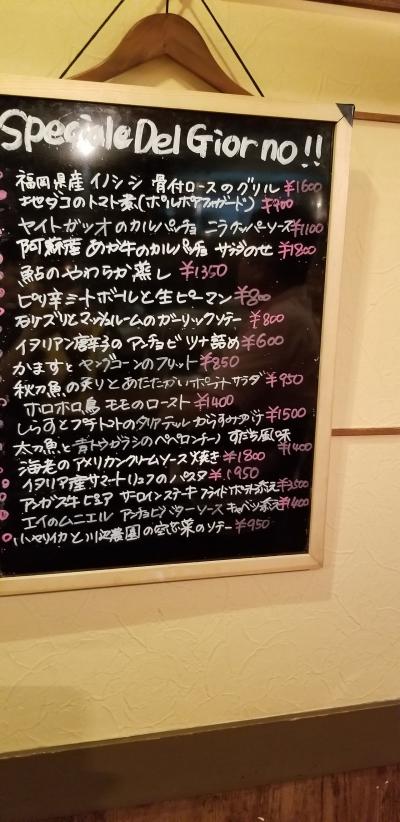 Speciale Del Giorno!!
福岡県産 イノシシ 骨付ロースのグリル ¥1600
地ダコのトマト煮(ポルポアフォガード) ¥900
ヤイトガツオのカルパッチョ ニラケッパーソース ¥1100
阿蘇産 あか牛のカルパッチョ サラダのせ ¥1800
のやわらか蒸し ¥1350
ピリ辛ミートボールと生ピーマン ¥800
砂ズリとマッシュルームのガーリックソテー ¥800
イタリアン唐辛子のアンチョビ ツナ詰め ¥600
かますと ヤングコーンのフリット ¥850
秋刀魚の炙りとあたたかいポテトサラダ ¥950
ホロホロ鳥 モモのロースト ¥1400
しらすとプチトマトのタリオリーニ からすみがけ ¥1500
太刀魚と青トウガラシのペペロンチーノ すだち風味 ¥1400
海老のアメリカンクリームソース焼き ¥1800
イタリア産サマートリュフのパスタ ¥1950
アンガス牛 サーロインステーキ フライドポテト添え ¥2500
エイのムニエル アンチョビバターソース キャベツ添え ¥1400
小ヤリイカと川辺農園の空芯菜のソテー ¥950